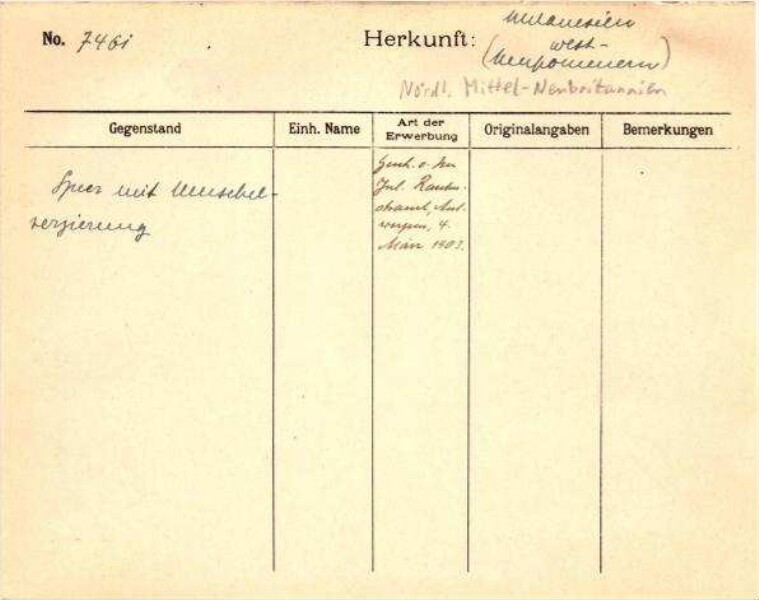 No. 7461 Herkunft: Melanesien
(West-
Neupommern)
Nördl. Mittel-Neubritannien
Gegenstand Einh. Name Art der Erwerbung Originalangaben Bemerkungen
Speer mit Muschel-
verzierung
Gesch. v. Frau
Jul. Rauten-
strauch, Ant-
werpen, 4.
März 1903.